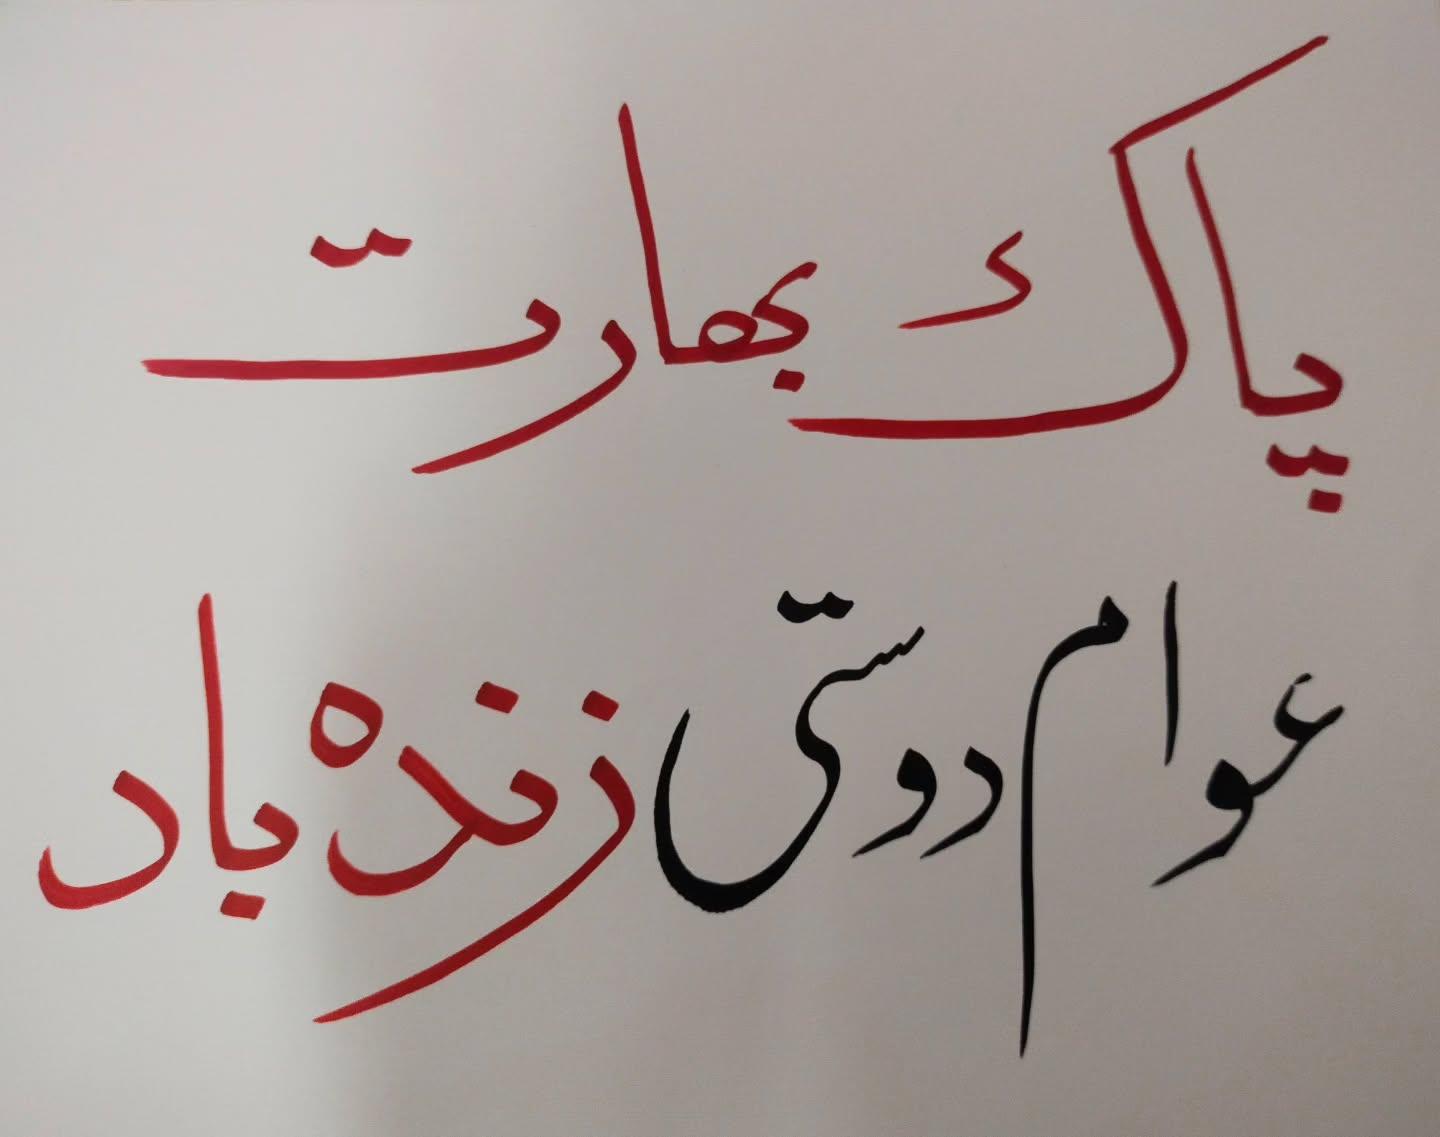 پاک بھارت
عوام دوستی زندہ باد